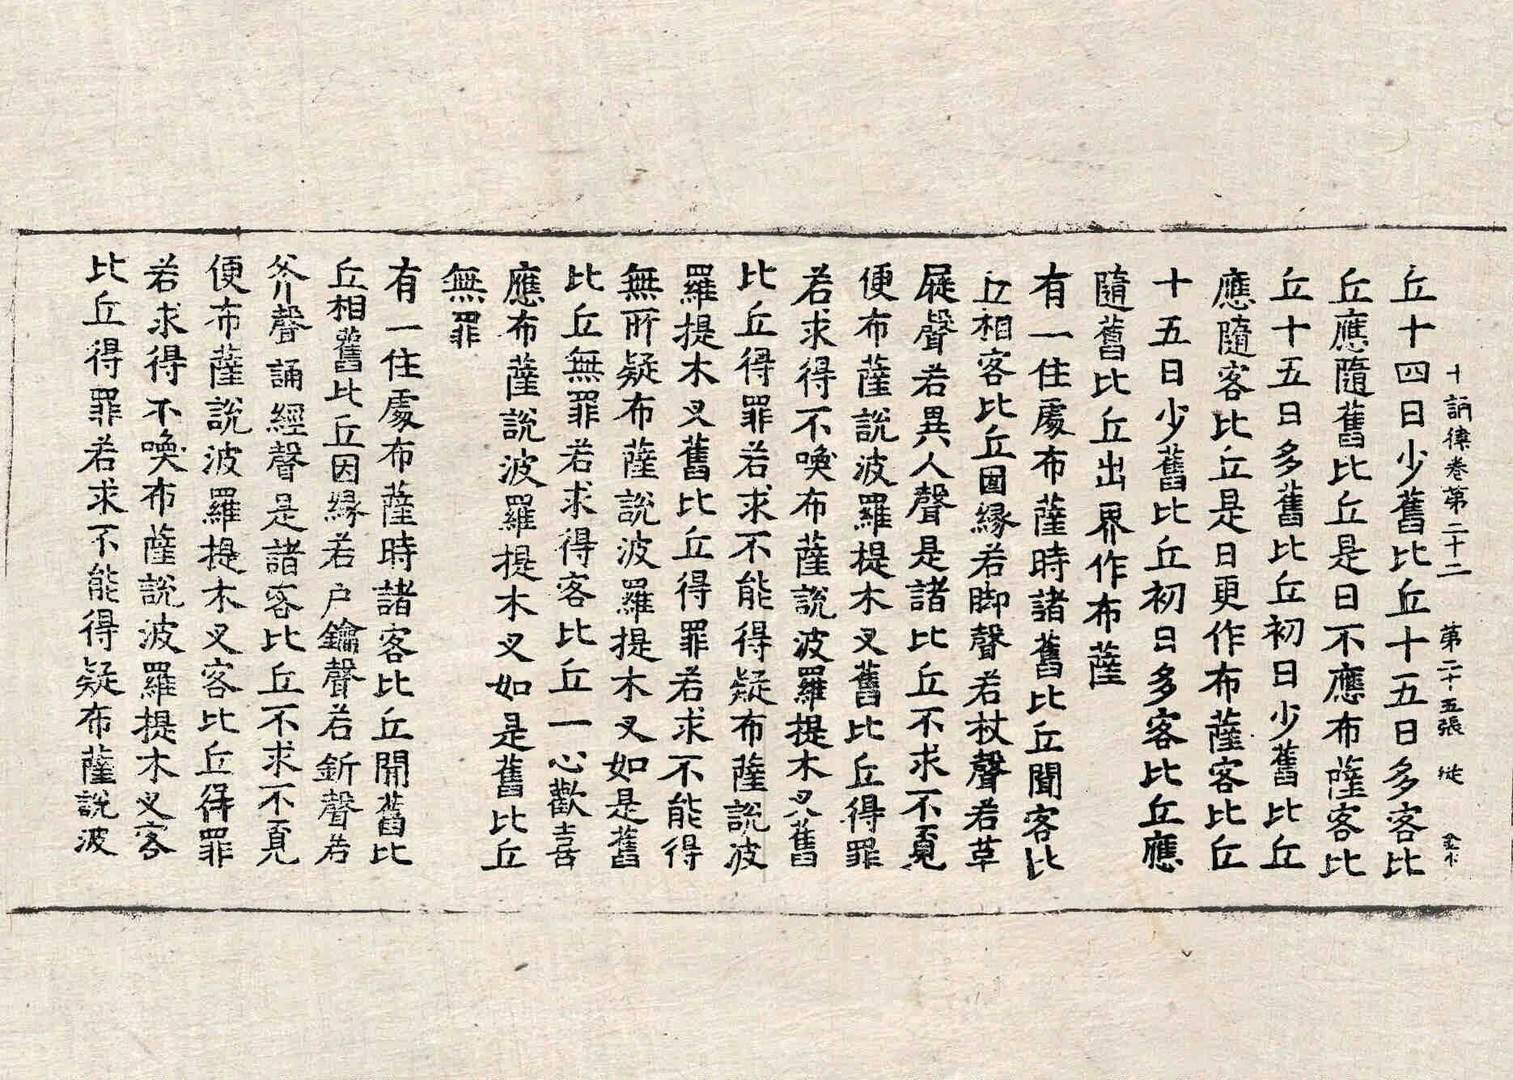 十誦律卷第二十二　第二十五張　従
丘十四日少舊比丘十五日多客比
丘應隨舊比丘是日不應布薩客比
丘十五日多舊比丘初日少舊比丘
應隨客比丘是日更作布薩客比丘
十五日少舊比丘初日多客比丘應
隨舊比丘出界作布薩
有一住處布薩時諸舊比丘聞客比
丘相客比丘因縁若脚聲若杖聲若草
屣聲若異人聲是諸比丘不求不覔
便布薩說波羅提木叉舊比丘得罪
若求得不喚布薩說波羅提木叉舊
比丘得罪若求不能得疑布薩說波
羅提木叉舊比丘得罪若求不能得
無所疑布薩說波羅提木叉如是舊
比丘無罪若求得客比丘一心歡喜
應布薩說波羅提木叉如是舊比丘
無罪
有一住處布薩時諸客比丘聞舊比
丘相舊比丘因縁若户鑰聲若斲聲若
斧聲誦經聲是諸客比丘不求不覔
便布薩說波羅提木叉客比丘得罪
若求得不喚布薩說波羅提木叉客
比丘得罪若求不能得疑布薩說波